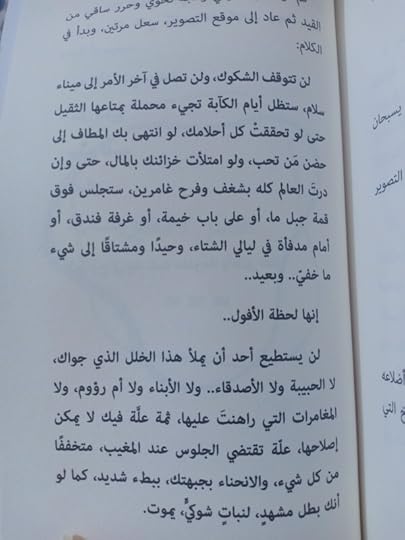 نحوي وحرر ساقي من
القيد ثم عاد إلى موقع التصوير، سعل مرتين، وبدأ في
الكلام:
لن تتوقف الشكوك، ولن تصل في آخر الأمر إلى ميناء
سلام، ستظل أيام الكآبة تجيء محملة بمتاعها الثقيل
حتى لو تحققتْ كل أحلامك، لو انتهى بك المطاف إلى
حضن مَن تحب، ولو امتلأت خزائنك بالمال، حتى وإن
درتَ العالم كله بشغف وفرح غامرين، ستجلس فوق
قمة جبل ما، أو على باب خيمة، أو غرفة فندق، أو
أمام مدفأة في ليالي الشتاء، وحيدًا ومشتاقًا إلى شيء
ما خفيّ.. وبعيد..
إنها لحظة الأفول..
لن يستطيع أحد أن يملأ هذا الخلل الذي جواك،
لا الحبيبة ولا الأصدقاء.. ولا الأبناء ولا أم رؤوم، ولا
المغامرات التي راهنتَ عليها، ثمة علّة فيك لا يمكن
إصلاحها، علّة تقتضي الجلوس عند المغيب، متخففًا
من كل شيء، والانحناء بجبهتك، ببطء شديد، كما لو
أنك بطل مشهدٍ، لنباتٍ شوكيٍّ، يموت.
يسبحان
التصوير
أضلاعه
التي